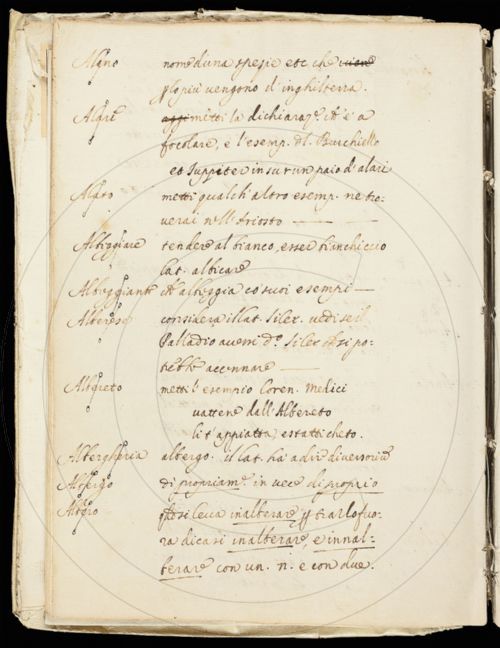 Alano nome d'una spezie etc che viene
p lo piu vengono d'inghilterra.
Alari aggi metti la dichiaraz.e ch' è a
focolare, e l'esemp. del Burchiello
et Iuppiter in su un paio d'alari
metti qualch' altro esemp. ne tro=
verai nell' Ariosto
Albeggiare tendere al bianco, esser bianchiccio
lat. albicare
Albeggiante ch' albeggia co' suoi esempi
considera il lat. siler. vedi se il
Palladio
accennare
Albereto metti l'esempio Loren. Medici
vattene dall'Albereto
e statti cheto.
Albergheria albergo. il lat. ha a dir diversorium
Albergo di propriam.e in vece di proprio
inalberare p trarlo fuo=
ra dicasi inalberare, e innal=
berare con un. n. e con due.